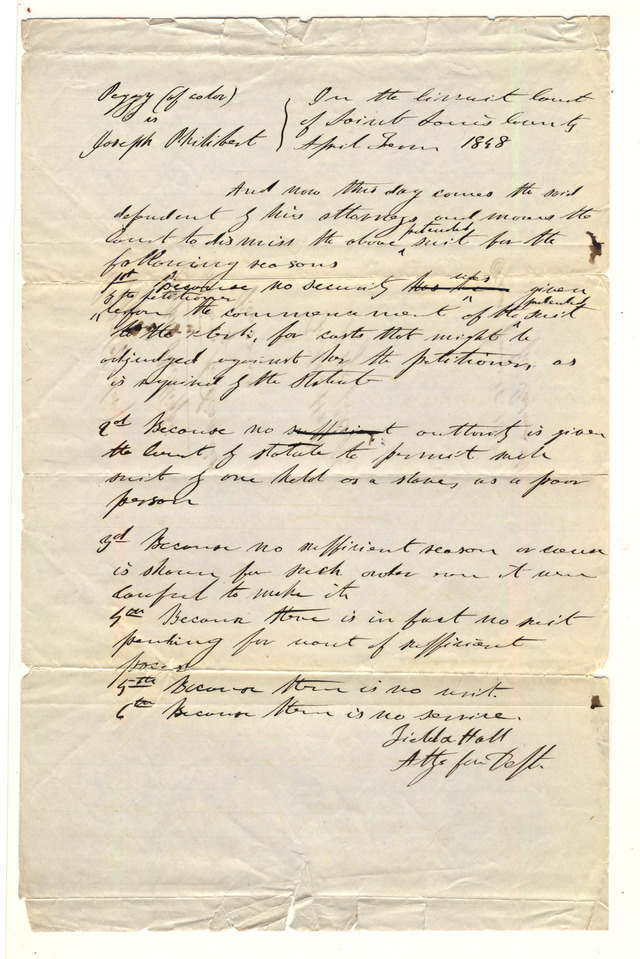 Peggy (of color)
vs
Joseph Philibert
In the Circuit Court
of Saint Louis County
April Term 1848
And now this day comes the said
defendent by his attorneys and moves the
Court to dismiss the above pretended suit for the
following reasons
1st Because no security was given
by the petitioner
before the commencement of the pretended suit
to the clerk, for costs that might be
adjudged against her the petitioner, as
is required by the Statute
2nd Because no sufficient authority is given
the Court by statute to permit such
suit by one held as a slave, as a poor
person
3d Because no sufficient reason or cause
is shown for such order even it were
lawful to make it
4th Because there is in fact no suit
pending for want of sufficient
5th Because there is no writ.
6th Because there is no service.
Field & Hall
Attys for Deft